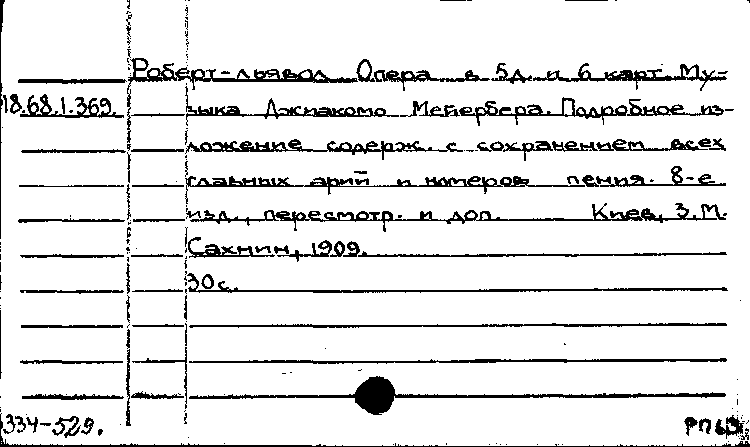 Роберт-дьявол Опера в 5д. и 6 карт. Му-
18.68.1.369. зыка Джиакомо Мейербера. Подробное из-
ложение содерж. с сохранением всех
главных арий и номеров пения. 8-е
изд., пересмотр. и доп. Киев, З.М.
Сахнин, 1909.
30с.
334-529.